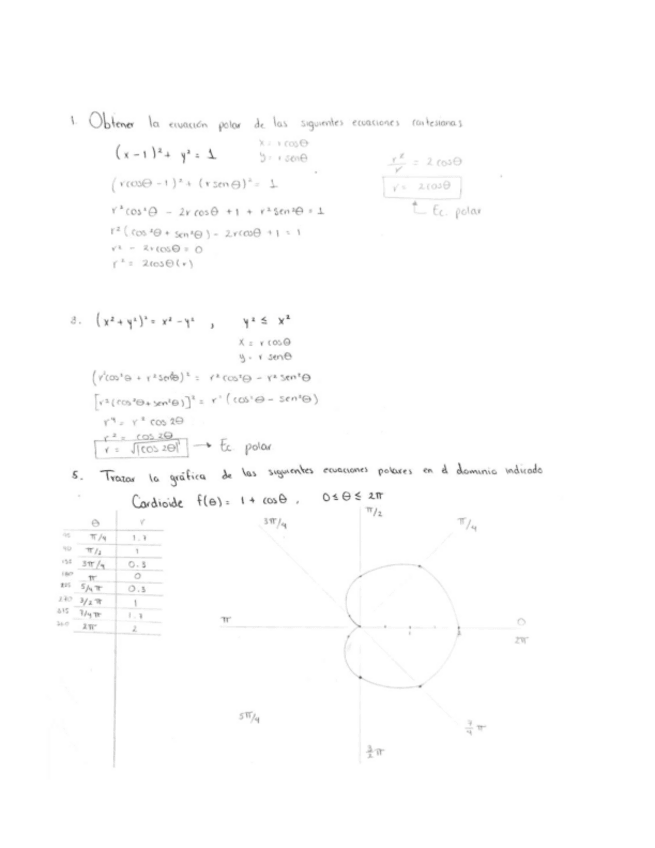 1. Obtener la ecuación polar de las siguientes ecuaciones cartesianas
(x-1)² + y² = 1
x = rcosθ
y = rsenθ
(rcosθ - 1)² + (rsenθ)² = 1
r²cos²θ - 2rcosθ + 1 + r²sen²θ = 1
r²(cos²θ + sen²θ) - 2rcosθ + 1 = 1
r² - 2rcosθ = 0
r² = 2cosθ(r)
r²/r = 2cosθ
r = 2cosθ
Ec. polar
3. (x² + y²)² = x² - y² , y² ≤ x²
x = r cosθ
y = r senθ
(r²cos²θ + r²sen²θ)² = r²cos²θ - r²sen²θ
[r²(cos²θ + sen²θ)]² = r²(cos²θ - sen²θ)
r⁴ = r² cos 2θ
r² = cos 2θ
r = √|cos 2θ| → Ec. polar
5. Trazar la gráfica de las siguientes ecuaciones polares en el dominio indicado
Cardioide f(θ) = 1 + cosθ , 0 ≤ θ ≤ 2π
θ r
45 π/4 1.7
90 π/2 1
135 3π/4 0.3
180 π 0
225 5/4 π 0.3
270 3/2 π 1
315 7/4 π 1.7
360 2π 2
3π/4
π/2
π/4
π
1
2
0
2π
5π/4
3/2 π
7/4 π